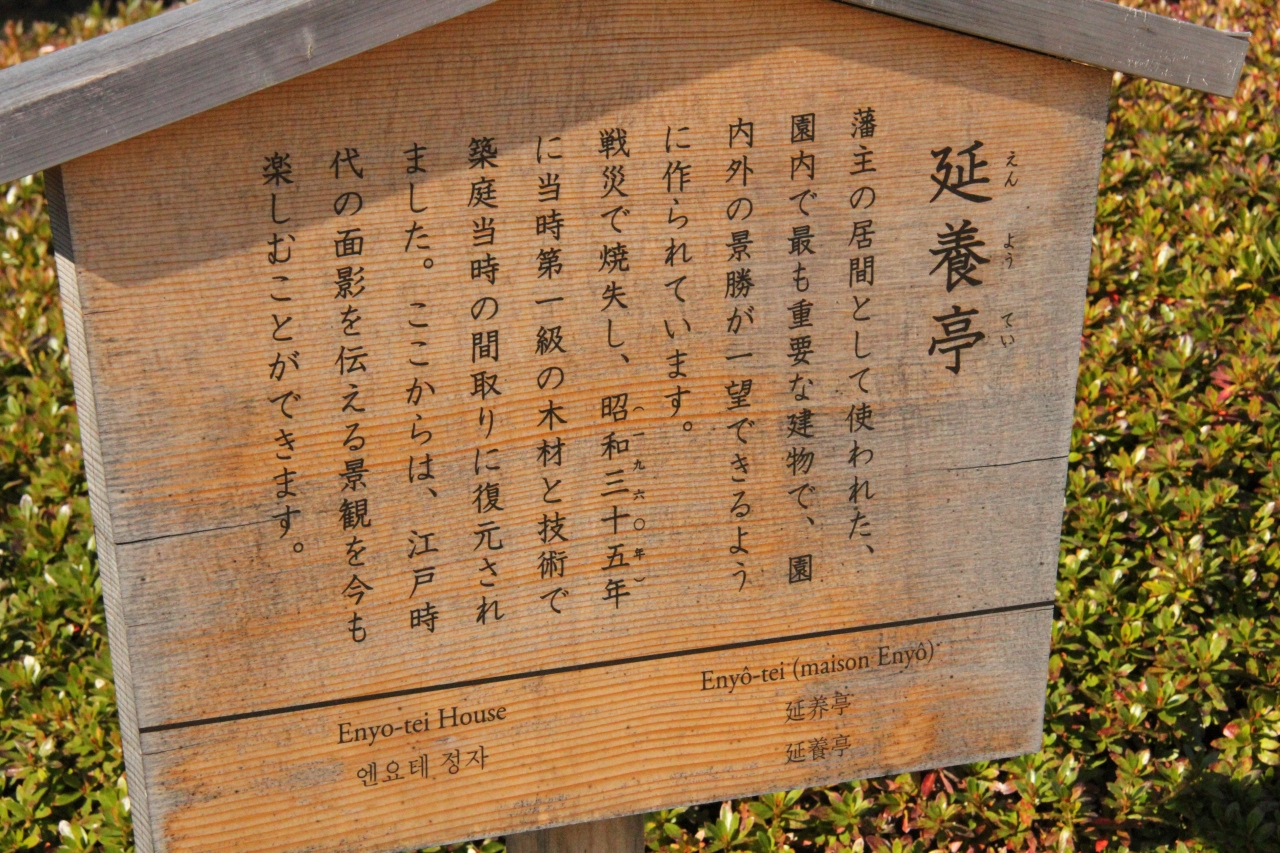 延養亭
えん よう てい
藩主の居間として使われた、
園内で最も重要な建物で、園
内外の景勝が一望できるよう
に作られています。
戦災で焼失し、昭和三十五年
（一九六〇年）
に当時第一級の木材と技術で
築庭当時の間取りに復元され
ました。ここからは、江戸時
代の面影を伝える景観を今も
楽しむことができます。
Enyo-tei House
엔요테 정자
Enyô-tei (maison Enyô)
延养亭
延養亭